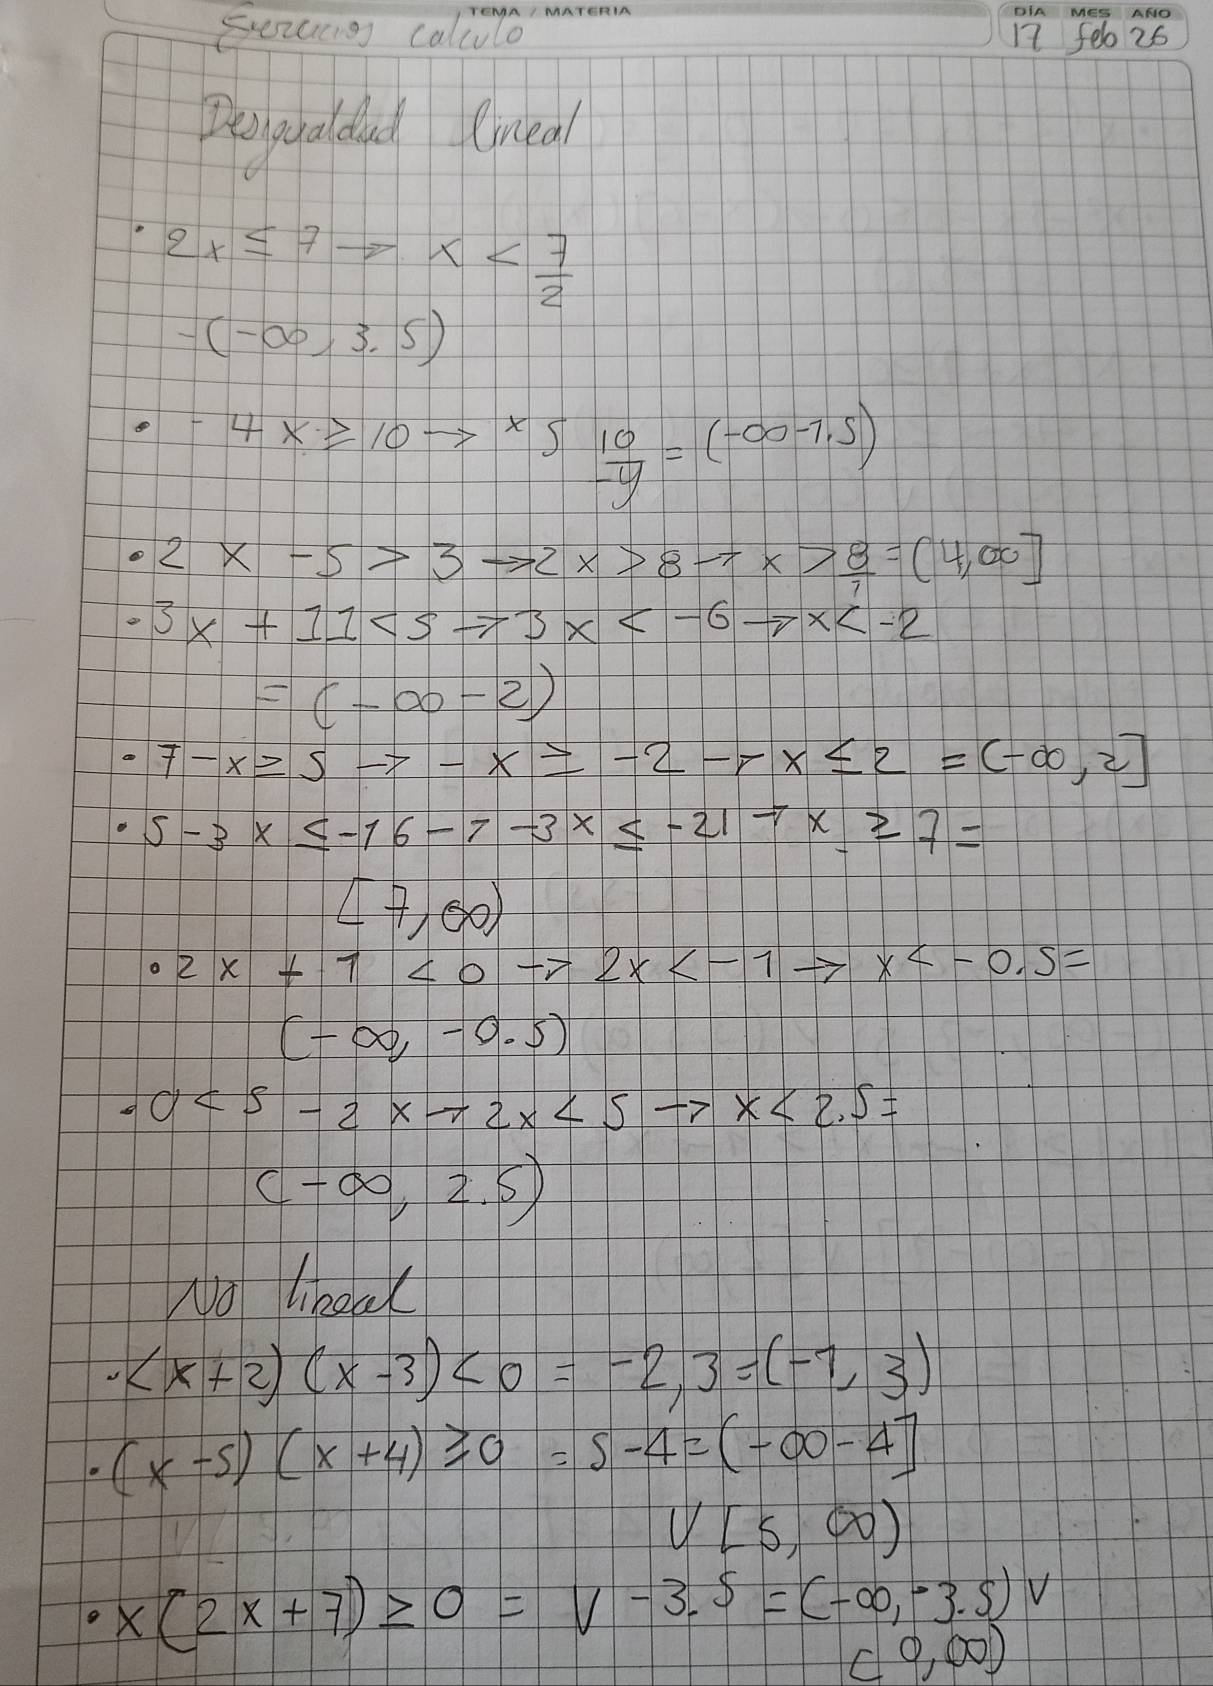 TEMA / MATERIA DÍA MES AÑO
Ejercicios calculo 17 feb 26
Desigualdad lineal
• 2x ≤ 7 → x < 7/2
-(-∞, 3.5)
• -4x ≥ 10 → x 5 10/-y = (-∞-1.5)
• 2x - 5 > 3 → 2x > 8 → x > 8/7 = (4,∞]
• 3x + 11 < 5 → 3x < -6 → x < -2
= (-∞ - 2)
• 7 - x ≥ 5 → - x ≥ -2 → x ≤ 2 = (-∞, 2]
• 5 - 3x ≤ -16 → -3x ≤ -21 → x ≥ 7 =
[7, ∞)
• 2x + 1 < 0 → 2x < -1 → x < -0.5 =
(-∞, -0.5)
• 0 < 5 - 2x → 2x < 5 → x < 2.5 =
(-∞, 2.5)
No lineal
• (x+2) (x-3) < 0 = -2, 3 = (-1, 3)
• (x-5) (x+4) ≥ 0 = 5 - 4 = (-∞ - 4]
∪ [5, ∞)
• x(2x+7) ≥ 0 = V -3.5 = (-∞, -3.5) V
(0, ∞)